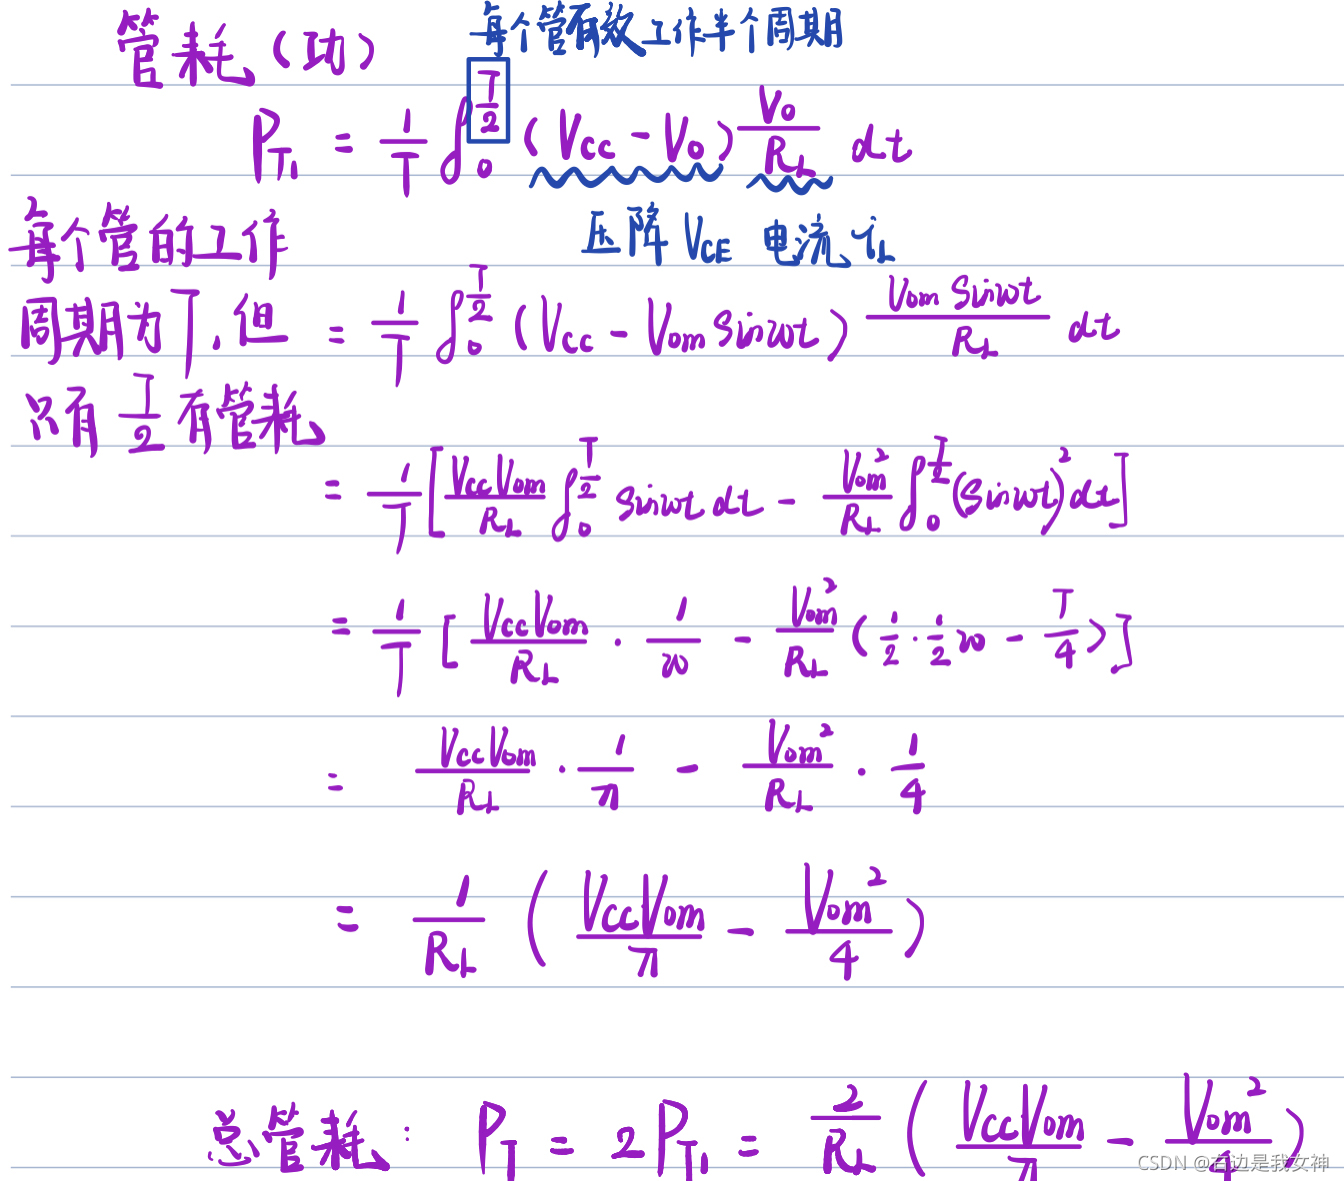 每个管有效工作半个周期
管耗(功)
P_{T_1} = \frac{1}{T} \int_0^{\frac{T}{2}} (V_{CC} - V_o) \frac{V_o}{R_L} dt
压降 V_{CE} 电流 i_L
每个管的工作
周期为T,但
只有 \frac{T}{2} 有管耗
= \frac{1}{T} \int_0^{\frac{T}{2}} (V_{CC} - V_{om} sinwt) \frac{V_{om} sinwt}{R_L} dt
= \frac{1}{T} [\frac{V_{CC}V_{om}}{R_L} \int_0^{\frac{T}{2}} sinwt dt - \frac{V_{om}^2}{R_L} \int_0^{\frac{T}{2}} (sinwt)^2 dt]
= \frac{1}{T} [\frac{V_{CC}V_{om}}{R_L} · \frac{1}{w} - \frac{V_{om}^2}{R_L} (\frac{1}{2} · \frac{1}{2} w - \frac{T}{4})]
= \frac{V_{CC}V_{om}}{R_L} · \frac{1}{π} - \frac{V_{om}^2}{R_L} · \frac{1}{4}
= \frac{1}{R_L} (\frac{V_{CC}V_{om}}{π} - \frac{V_{om}^2}{4})
总管耗: P_T = 2P_{T_1} = \frac{2}{R_L} (\frac{V_{CC}V_{om}}{π} - \frac{V_{om}^2}{4})
CSDN @右边是我女神